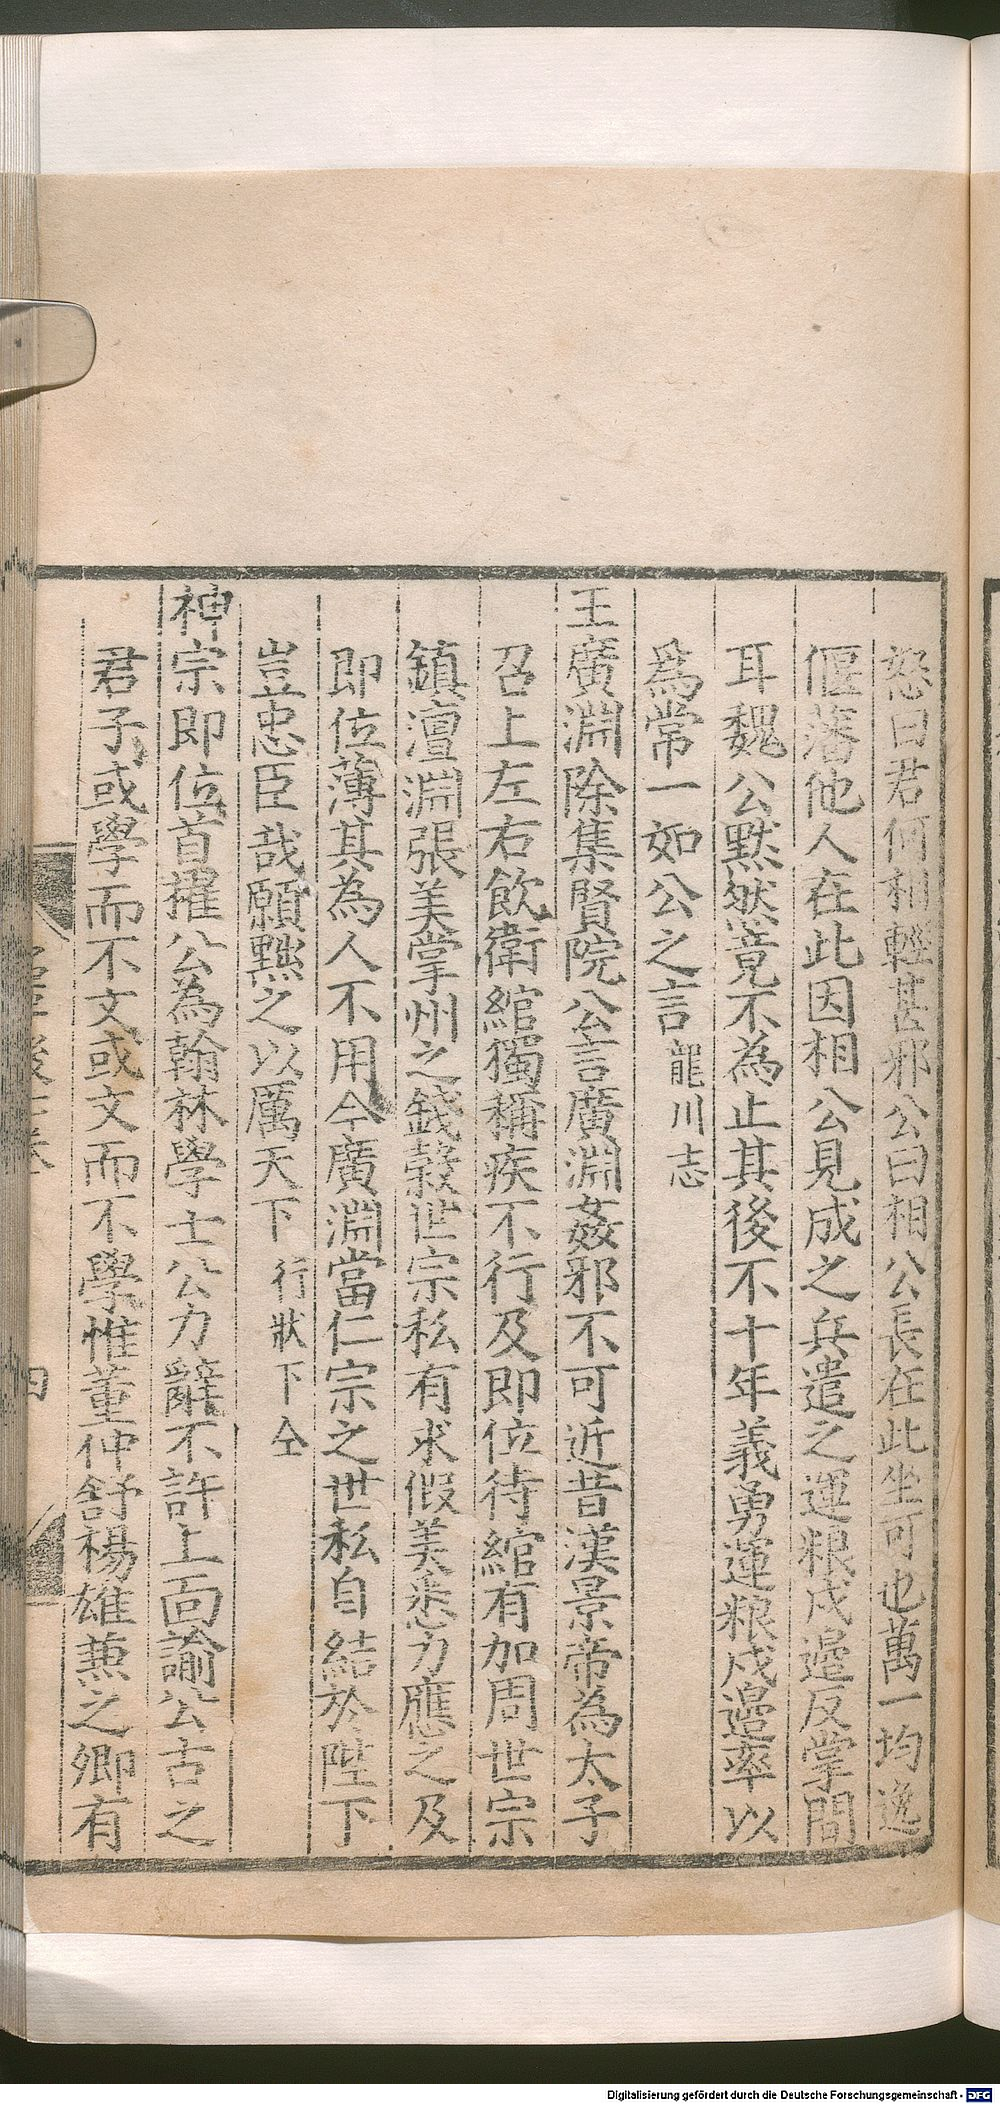 怒曰君何相輕甚邪公曰相公長在此坐可也萬一均逸
偃藩他人在此因相公見成之兵遣之運粮戍邉反掌間
耳魏公黙然竟不為止其後不十年義勇運粮戍邉率以
爲常一如公之言龍川志
王廣淵除集賢院公言廣淵姦邪不可近昔漢景帝為太子
召上左右飲衛綰獨稱疾不行及即位待綰有加周世宗
鎮澶淵張美掌州之錢榖世宗私有求假美悉力應之及
即位薄其為人不用今廣淵當仁宗之世私自結於陛下
豈忠臣哉願黜之以厲天下行狀下仝
神宗即位首擢公為翰林學士公力辭不許上面諭公古之
君子或學而不文或文而不學惟董仲舒楊雄兼之卿有
四
Digitalisierung gefördert durch die Deutsche Forschungsgemeinschaft - DFG